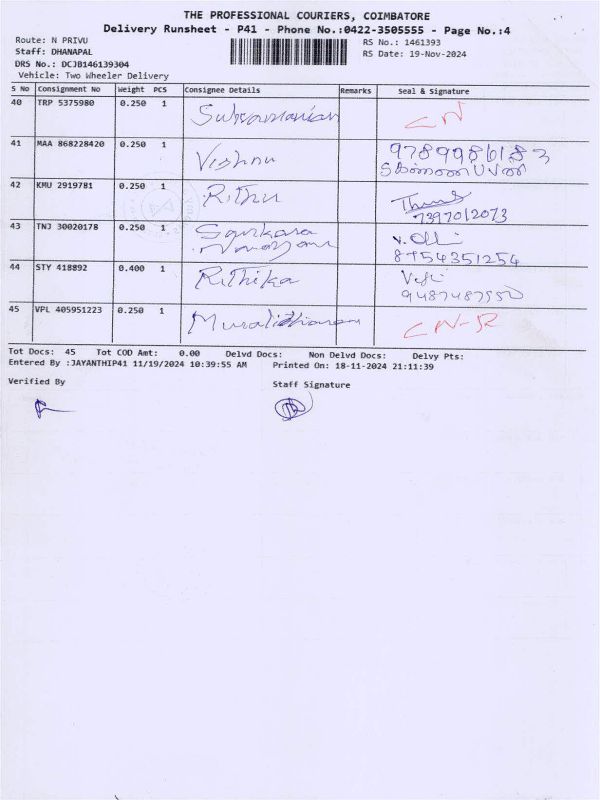 THE PROFESSIONAL COURIERS, COIMBATORE
Delivery Runsheet - P41 - Phone No.:0422-3505555 - Page No.:4
Route: N PRIVU
RS No.: 1461393
Staff: DHANAPAL
RS Date: 19-Nov-2024
DRS No.: DCJB146139304
Vehicle: Two Wheeler Delivery
S No Consignment No Weight PCS Consignee Details Remarks Seal & Signature
40 TRP 5375980 0.250 1 Subramanian CN
41 MAA 868228420 0.250 1 Vishnu
42 KMU 2919781 0.250 1 Rithu
7397012073
43 TNJ 30020178 0.250 1 Sankara
Narayanan
8754351254
44 STY 418892 0.400 1 Rithika
9487487550
45 VPL 405951223 0.250 1 Muralidharan
Tot Docs: 45 Tot COD Amt: 0.00 Delvd Docs: Non Delvd Docs: Delvy Pts:
Entered By :JAYANTHIP41 11/19/2024 10:39:55 AM Printed On: 18-11-2024 21:11:39
Verified By Staff Signature